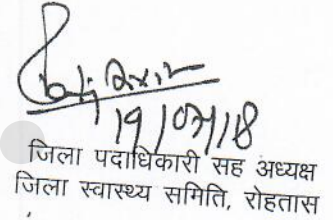 19/07/18
जिला पदाधिकारी सह अध्यक्ष
जिला स्वास्थ्य समिति, रोहतास